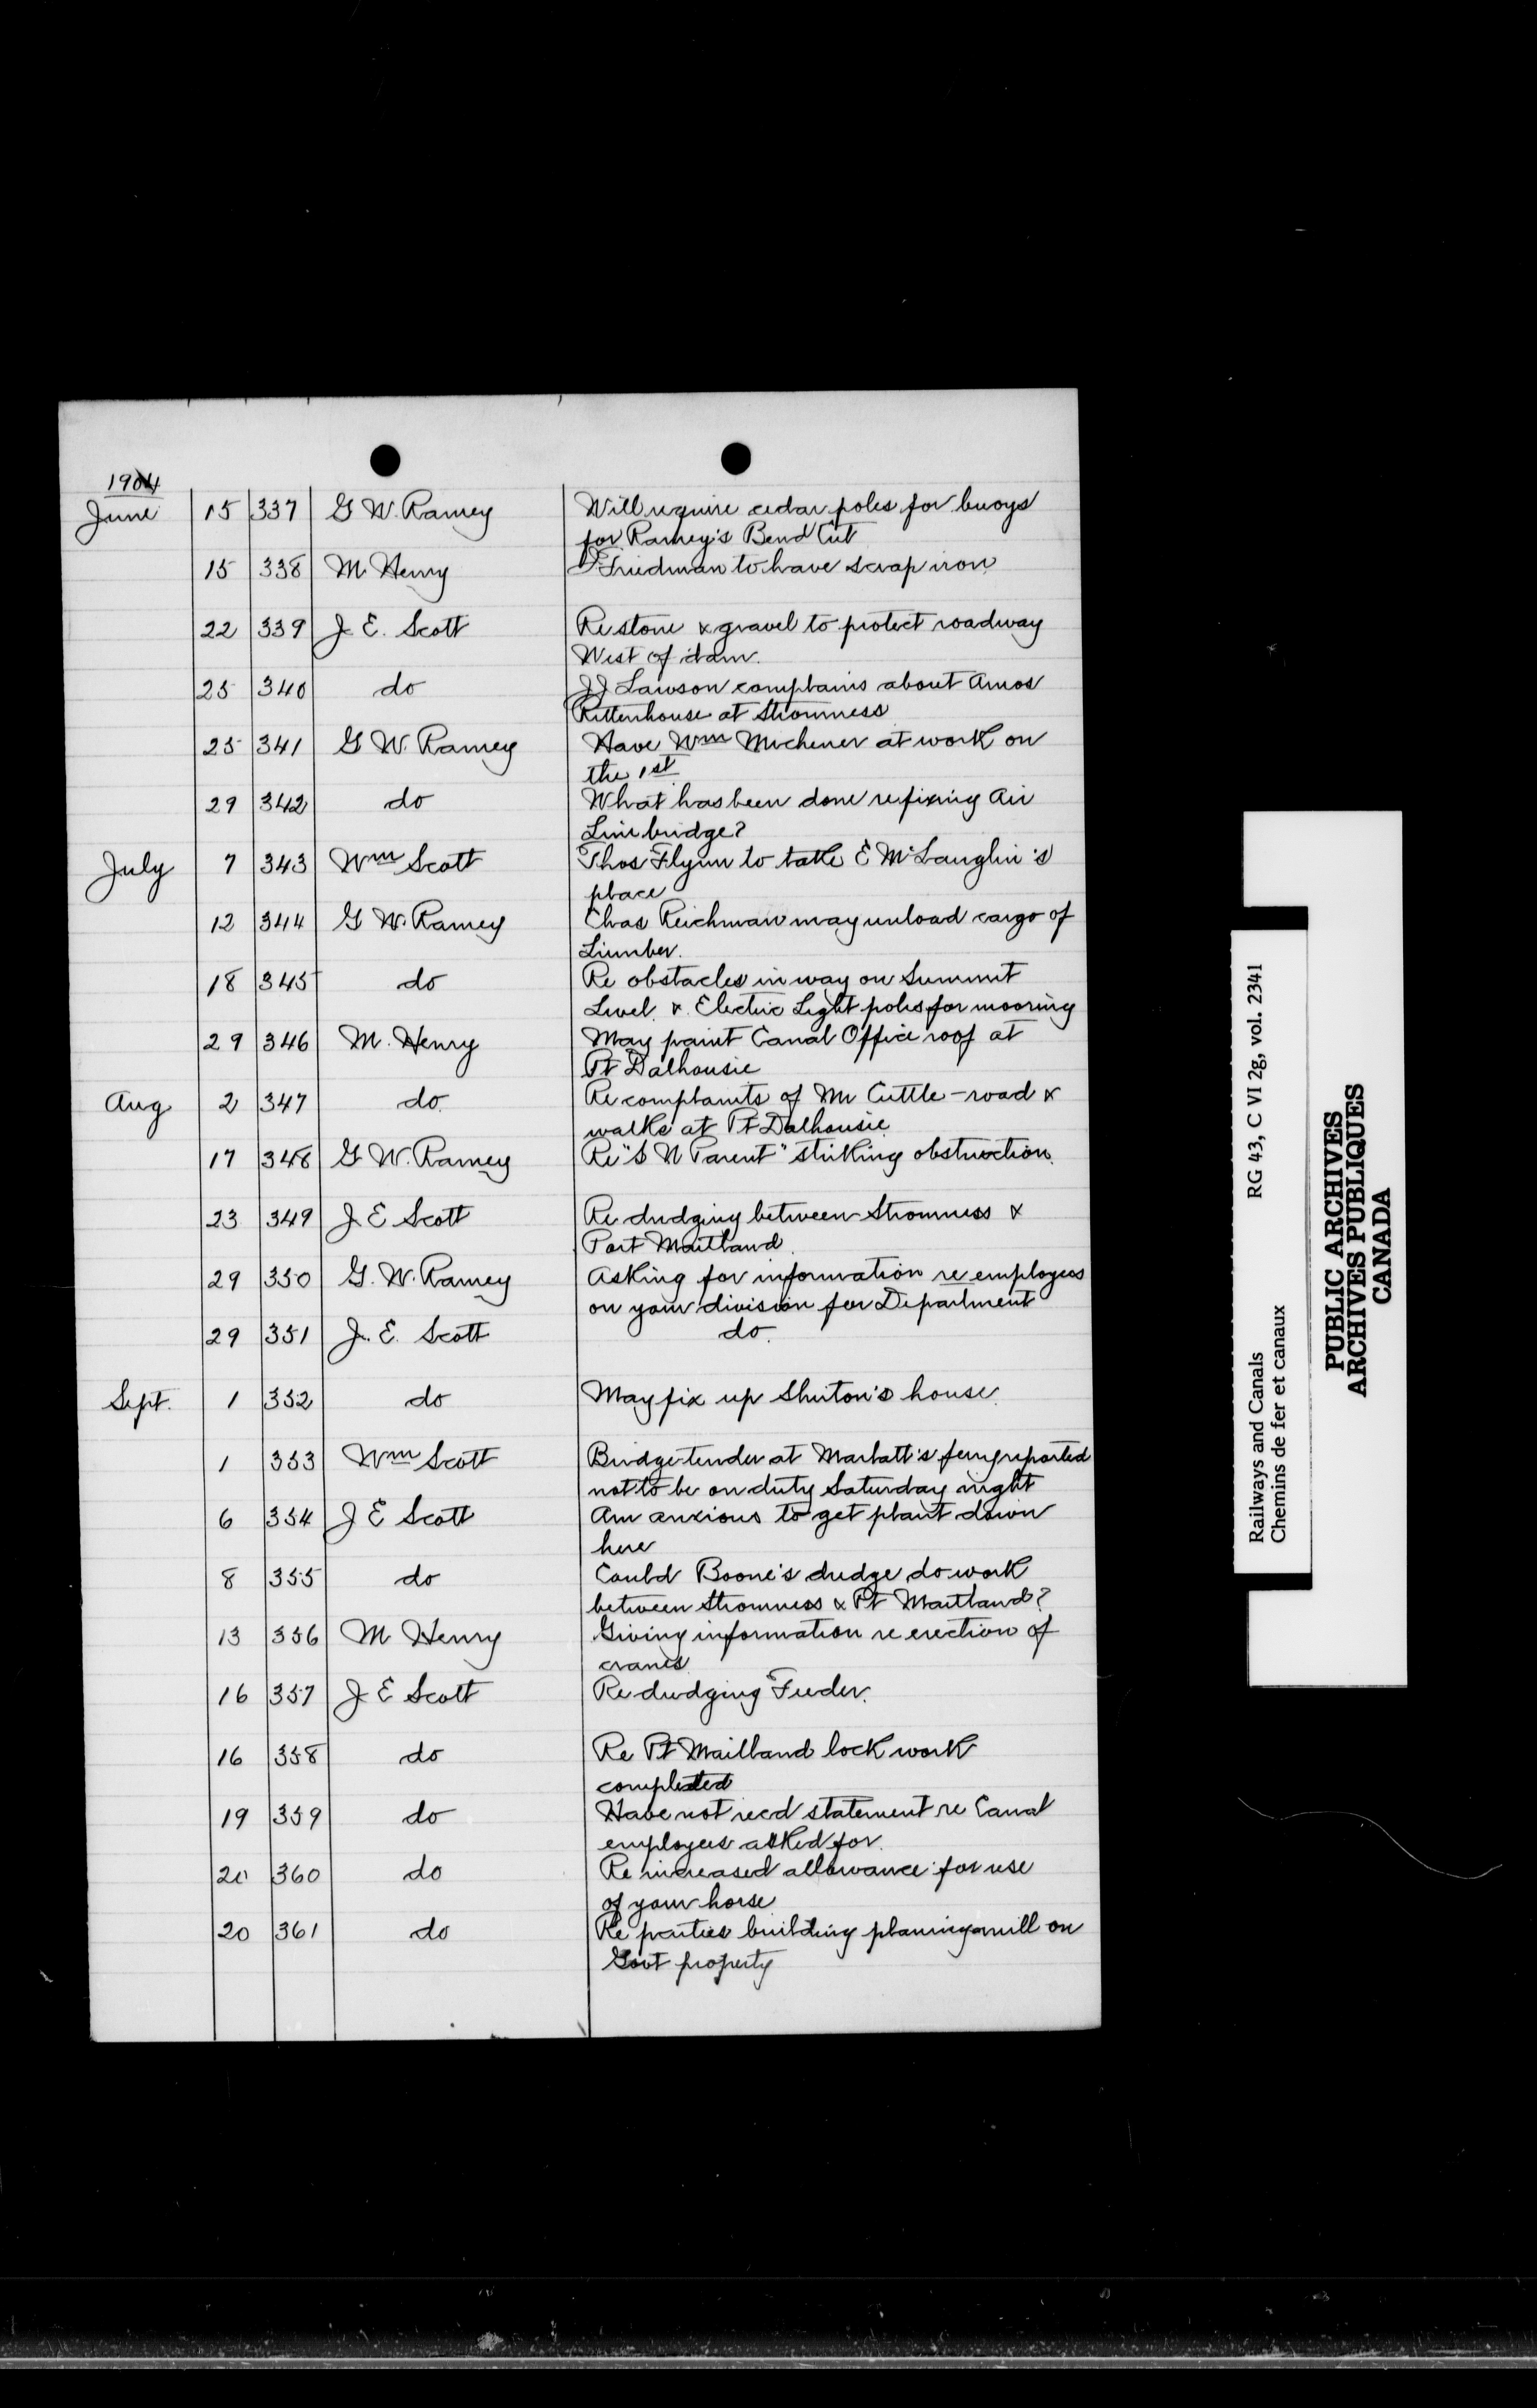 1904
June 15 337 G W. Ramey Will require cedar poles for buoys
for Ramey's Bend Cut
15 338 M. Henry Friedman to have scrap iron
22 339 J. E. Scott Re stone & gravel to protect roadway
West of dam.
25 340 do JJ Lawson complains about Amos
Rittenhouse at Stromness
25 341 G W. Ramey Have Wm Michener at work on
the 1st
29 342 do What has been done re fixing Air
Line bridge?
July 7 343 Wm Scott Thos Flynn to take E McLaughlin's
place
12 344 G W. Ramey Chas Reichman may unload cargo of
Lumber.
18 345 do Re obstacles in way on Summit
Level & Electric Light poles for mooring
29 346 M. Henry May paint Canal Office roof at
Pt Dalhousie
Aug 2 347 do. Re complaints of Mr Cuttle - road &
walks at Pt Dalhousie
17 348 G W. Ramey Re "S N Parent" striking obstruction.
23 349 J E Scott Re dredging between Stromness &
Port Maitland.
29 350 G. W. Ramey Asking for information re employees
on your division for Department
29 351 J. E. Scott do.
Sept. 1 352 do May fix up house.
1 353 Wm Scott Bridge-tender at Marlatt's ferry reported
not to be on duty Saturday night
6 354 J E Scott Am anxious to get plant down
here
8 355 do Could Boone's dredge do work
between Stromness & Pt Maitland?
13 356 M Henry Giving information re erection of
cranes
16 357 J E Scott Re dredging Feeder.
16 358 do Re Pt Maitland lock work
completed
19 359 do Have not recd statement re Canal
employees asked for.
20 360 do Re increased allowance for use
of your horse
20 361 do Re parties building planing mill on
Govt property
Railways and Canals RG 43, C VI 2g, vol. 2341
Chemins de fer et canaux
PUBLIC ARCHIVES
ARCHIVES PUBLIQUES
CANADA